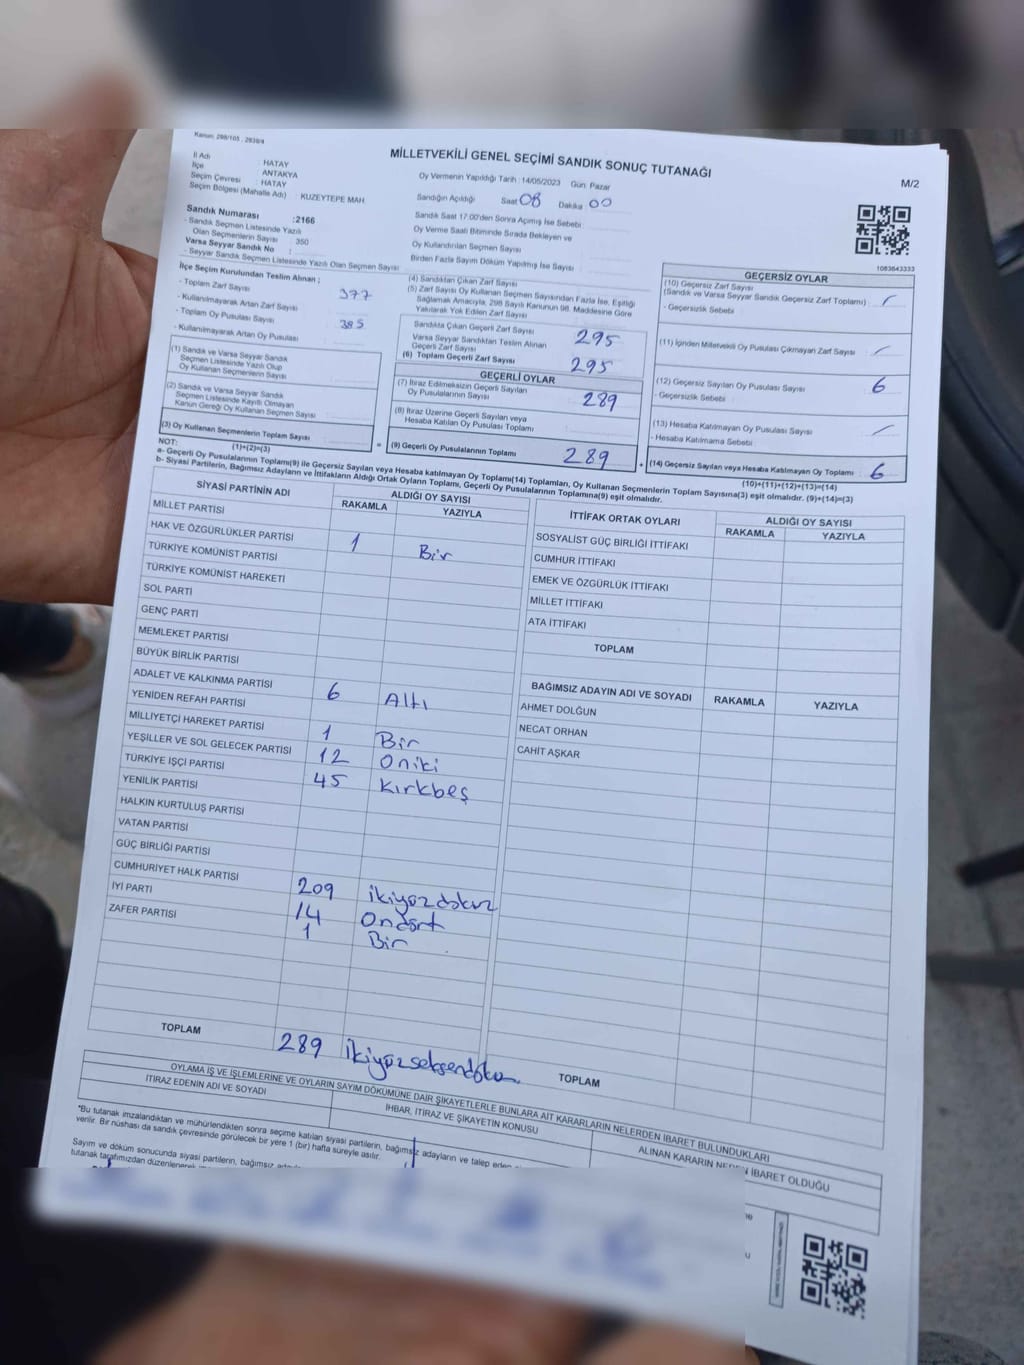 Kanun: 298/105 , 2839/4
MİLLETVEKİLİ GENEL SEÇİMİ SANDIK SONUÇ TUTANAĞI
M/2
İl Adı : HATAY
İlçe : ANTAKYA
Seçim Çevresi : HATAY
Seçim Bölgesi (Mahalle Adı) : KUZEYTEPE MAH
Oy Vermenin Yapıldığı Tarih : 14/05/2023 Gün Pazar
Sandığın Açıldığı Saat 08 Dakika 00
Sandık Saat 17.00'den Sonra Açımış İse Sebebi
Oy Verme Saati Bitiminde Sırada Bekleyen ve
Oy Kullandırılan Seçmen Sayısı
Birden Fazla Sayım Döküm Yapılmış İse Sayısı
Sandık Numarası :2166
- Sandık Seçmen Listesinde Yazılı
Olan Seçmenlerin Sayısı : 350
Varsa Seyyar Sandık No :
- Seyyar Sandık Seçmen Listesinde Yazılı Olan Seçmen Sayısı
1083643333
İlçe Seçim Kurulundan Teslim Alınan ;
- Toplam Zarf Sayısı 377
- Kullanılmayarak Artan Zarf Sayısı
- Toplam Oy Pusulası Sayısı 385
- Kullanılmayarak Artan Oy Pusulası
(1) Sandık ve Varsa Seyyar Sandık
Seçmen Listesinde Yazılı Olup
Oy Kullanan Seçmenlerin Sayısı
(2) Sandık ve Varsa Seyyar Sandık
Seçmen Listesinde Kayıtlı Olmayan
Kanun Gereği Oy Kullanan Seçmen Sayısı
(3) Oy Kullanan Seçmenlerin Toplam Sayısı
(1)+(2)=(3)
(4) Sandıktan Çıkan Zarf Sayısı
(5) Zarf Sayısı Oy Kullanan Seçmen Sayısından Fazla İse, Eşitliği
Sağlamak Amacıyla, 298 Sayılı Kanunun 98. Maddesine Göre
Yakılarak Yok Edilen Zarf Sayısı
Sandıkta Çıkan Geçerli Zarf Sayısı 295
Varsa Seyyar Sandıktan Teslim Alınan
Geçerli Zarf Sayısı
(6) Toplam Geçerli Zarf Sayısı 295
GEÇERLİ OYLAR
(7) İtiraz Edilmeksizin Geçerli Sayılan
Oy Pusulalarının Sayısı 289
(8) İtiraz Üzerine Geçerli Sayılan veya
Hesaba Katılan Oy Pusulası Toplamı
= (9) Geçerli Oy Pusulalarının Toplamı 289
GEÇERSİZ OYLAR
(10) Geçersiz Zarf Sayısı
(Sandık ve Varsa Seyyar Sandık Geçersiz Zarf Toplamı)
- Geçersizlik Sebebi
(11) İçinden Milletvekili Oy Pusulası Çıkmayan Zarf Sayısı
(12) Geçersiz Sayılan Oy Pusulası Sayısı 6
- Geçersizlik Sebebi
(13) Hesaba Katılmayan Oy Pusulası Sayısı
- Hesaba Katılmama Sebebi
+ (14) Geçersiz Sayılan veya Hesaba Katılmayan Oy Toplamı 6
(10)+(11)+(12)+(13)=(14)
NOT:
a- Geçerli Oy Pusulalarının Toplamı(9) ile Geçersiz Sayılan veya Hesaba katılmayan Oy Toplamı(14) Toplamları, Oy Kullanan Seçmenlerin Toplam Sayısına(3) eşit olmalıdır. (9)+(14)=(3)
b- Siyasi Partilerin, Bağımsız Adayların ve İttifakların Aldığı Ortak Oyların Toplamı, Geçerli Oy Pusulalarının Toplamına(9) eşit olmalıdır.
SİYASİ PARTİNİN ADI ALDIĞI OY SAYISI
RAKAMLA YAZIYLA
MİLLET PARTİSİ
HAK VE ÖZGÜRLÜKLER PARTİSİ 1 Bir
TÜRKİYE KOMÜNİST PARTİSİ
TÜRKİYE KOMÜNİST HAREKETİ
SOL PARTİ
GENÇ PARTİ
MEMLEKET PARTİSİ
BÜYÜK BİRLİK PARTİSİ
ADALET VE KALKINMA PARTİSİ 6 Altı
YENİDEN REFAH PARTİSİ
MİLLİYETÇİ HAREKET PARTİSİ 1 Bir
YEŞİLLER VE SOL GELECEK PARTİSİ 12 Oniki
TÜRKİYE İŞÇİ PARTİSİ 45 Kırkbeş
YENİLİK PARTİSİ
HALKIN KURTULUŞ PARTİSİ
VATAN PARTİSİ
GÜÇ BİRLİĞİ PARTİSİ
CUMHURİYET HALK PARTİSİ 209 ikiyüzdokuz
İYİ PARTİ 14 Ondört
ZAFER PARTİSİ 1 Bir
TOPLAM 289 ikiyüzseksendokuz
İTTİFAK ORTAK OYLARI ALDIĞI OY SAYISI
RAKAMLA YAZIYLA
SOSYALİST GÜÇ BİRLİĞİ İTTİFAKI
CUMHUR İTTİFAKI
EMEK VE ÖZGÜRLÜK İTTİFAKI
MİLLET İTTİFAKI
ATA İTTİFAKI
TOPLAM
BAĞIMSIZ ADAYIN ADI VE SOYADI RAKAMLA YAZIYLA
AHMET DOLĞUN
NECAT ORHAN
CAHİT AŞKAR
TOPLAM
OYLAMA İŞ VE İŞLEMLERİNE VE OYLARIN SAYIM DÖKÜMÜNE DAİR ŞİKAYETLERLE BUNLARA AİT KARARLARIN NELERDEN İBARET BULUNDUKLARI
İTİRAZ EDENİN ADI VE SOYADI İHBAR, İTİRAZ VE ŞİKAYETİN KONUSU ALINAN KARARIN NEDEN İBARET OLDUĞU
*Bu tutanak imzalandıktan ve mühürlendikten sonra seçime katılan siyasi partilerin, bağımsız adayların ve talep eden
verilir. Bir nüshası da sandık çevresinde görülecek bir yere 1 (bir) hafta süreyle asılır.
Sayım ve döküm sonucunda siyasi partilerin, bağımsız
tutanak tarafımızdan düzenlenerek